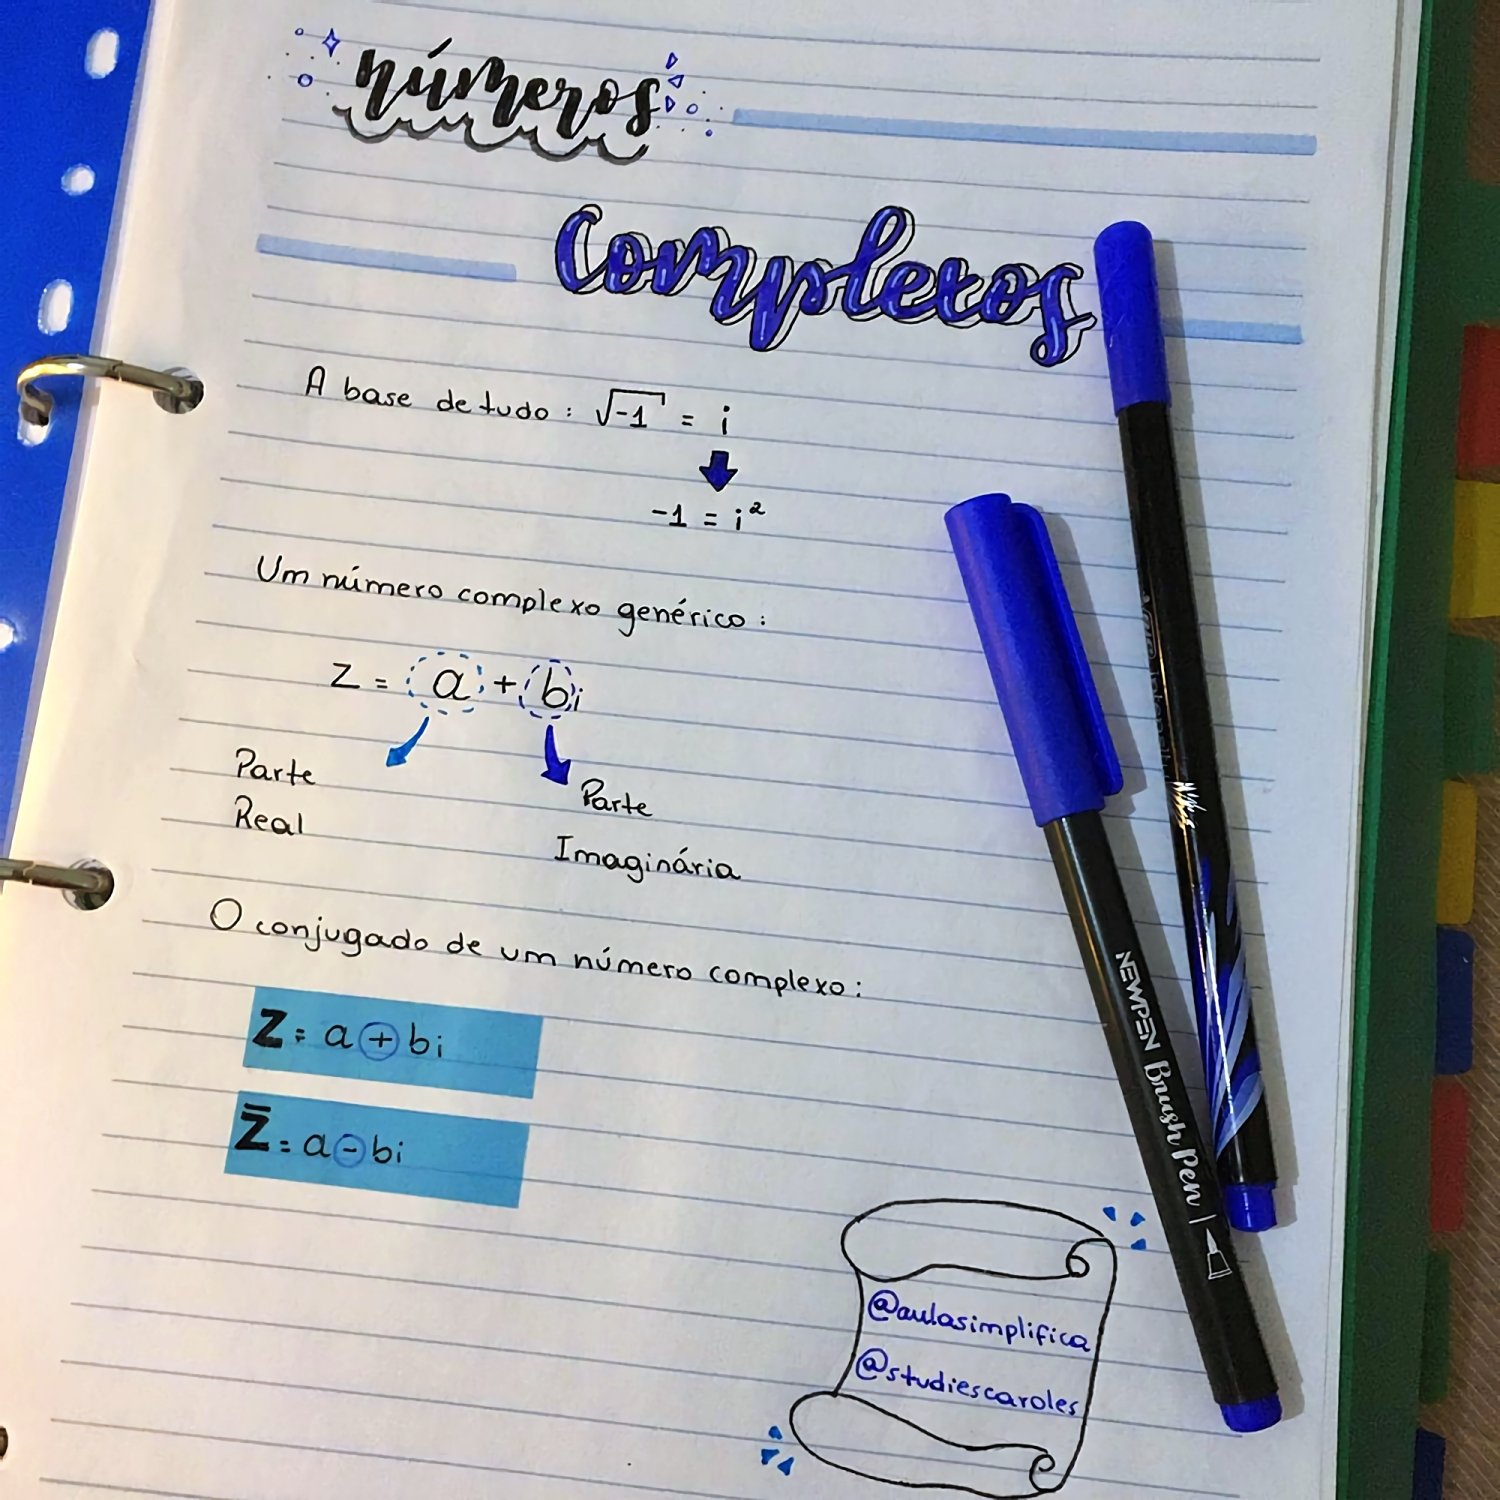 números
Complexos
A base de tudo: √-1 = i
-1 = i²
Um número complexo genérico:
z = a + bi
Parte
Real
Parte
Imaginária
O conjugado de um número complexo:
Z = a + bi
Z̅ = a - bi
@aulasimplifica
@studiescaroles
NEWPEN Brush Pen